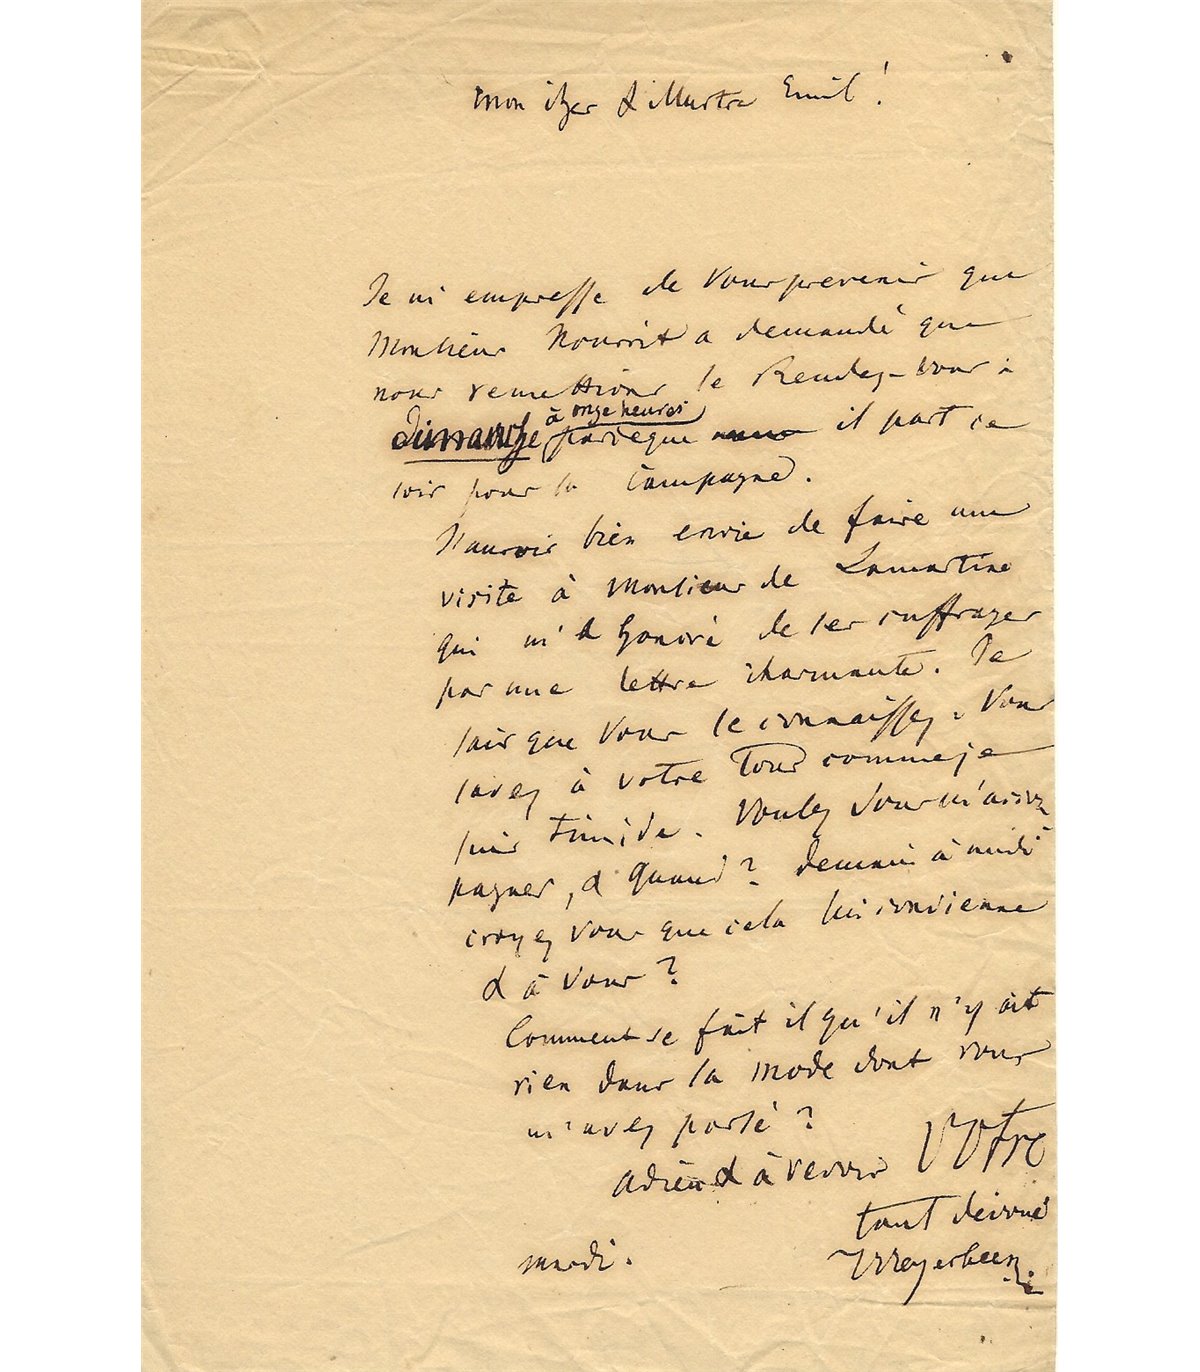 Mon cher & illustre Emil!
Je m'empresse de vous prevenir que
Monsieur Nourrit a demandé que
nous remettions le Rendez-vous à
dimanche à onze heures parceque il part ce
soir pour la Campagne.
J'aurois bien envie de faire une
visite à Monsieur de Lamartine
qui m'a honoré de ses suffrages
par une lettre charmante. Je
sais que vous le connaissez. Vous
savez à votre tour comme je
suis timide. Voulez vous m'accom
pagner, & quand? demain à midi
croyez vous que cela lui convienne
& à vous?
Comment se fait il qu'il n'y ait
rien dans la mode dont vous
m'avez parlé?
adieu & à revoir Votre
tout devoué
mardi. Meyerbeer